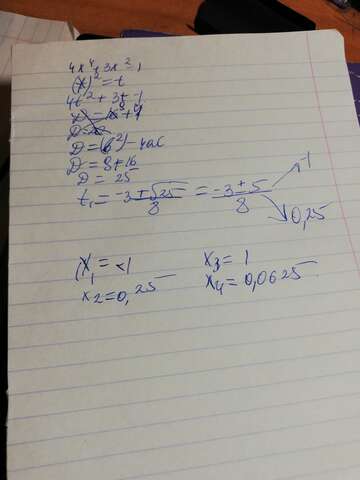 4x⁴+3x²=1
(x)²=t
4t²+3t-1
D=(b²)-4ac
D=8+16
D=25
t₁=-3±√25/8=-3±5/8 -1
0,25
x₁=-1 x₃=1
x₂=0,25 x₄=0,0625